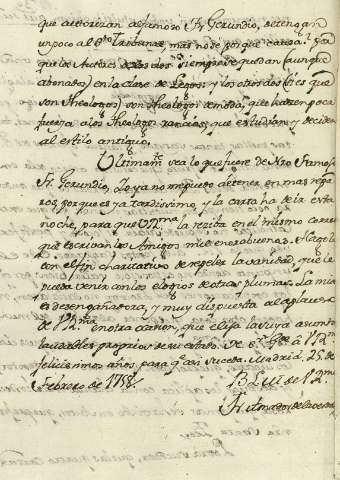 que autorizan al famoso Fr. Gerundio, detengan
un poco al Tribunal, mas no se por que causa:
que los Autores de los dos siempre se quedan (aunque
abonados) en la clase de Legos: y los otros dos (si es que
son Theologos) son Theologos que hazen poca
fuerza a los Theologos rancios, que estudian y deciden
al estilo antiguo.
Ultimam.te sea lo que fuere de Nro famoso
Fr. Gerundio, Yo ya no me puedo detener en mas repa
ros, porque es ya tardissimo, y la carta ha de ir esta
noche, para que la reciba en el mismo correo
que escrivan los Amigos mil enorabuenas. Hagolo
con el fin charitativo de la vanidad, que le
pueda venir con los elogios de otras plumas. La mia
es desengañadora, y muy dispuesta al aplauso
de en otra ocasion, que elija la suya asunto
laudables proprios de su estado. De
felicissimos años para q.e asi suceda. Madrid, 25 de
Febrero de 1758.
B L M de
Fr. Amador de la